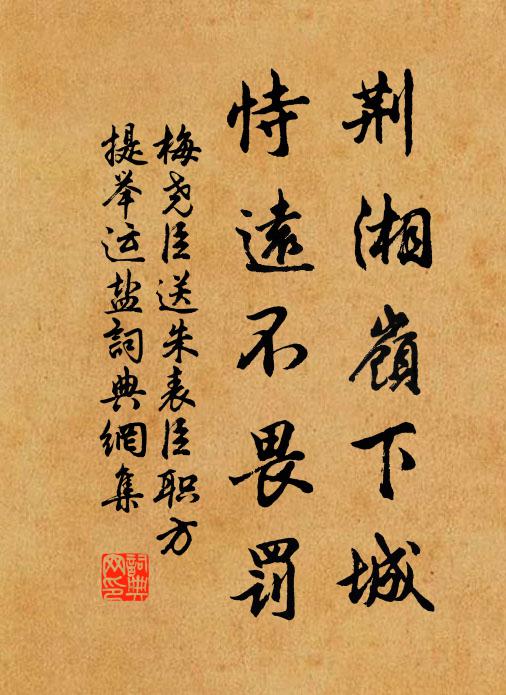 荆湘嶺下城
恃遠不畏罰
梅尧臣送朱表臣职方
提举运盐詞典網集
詞典
网印